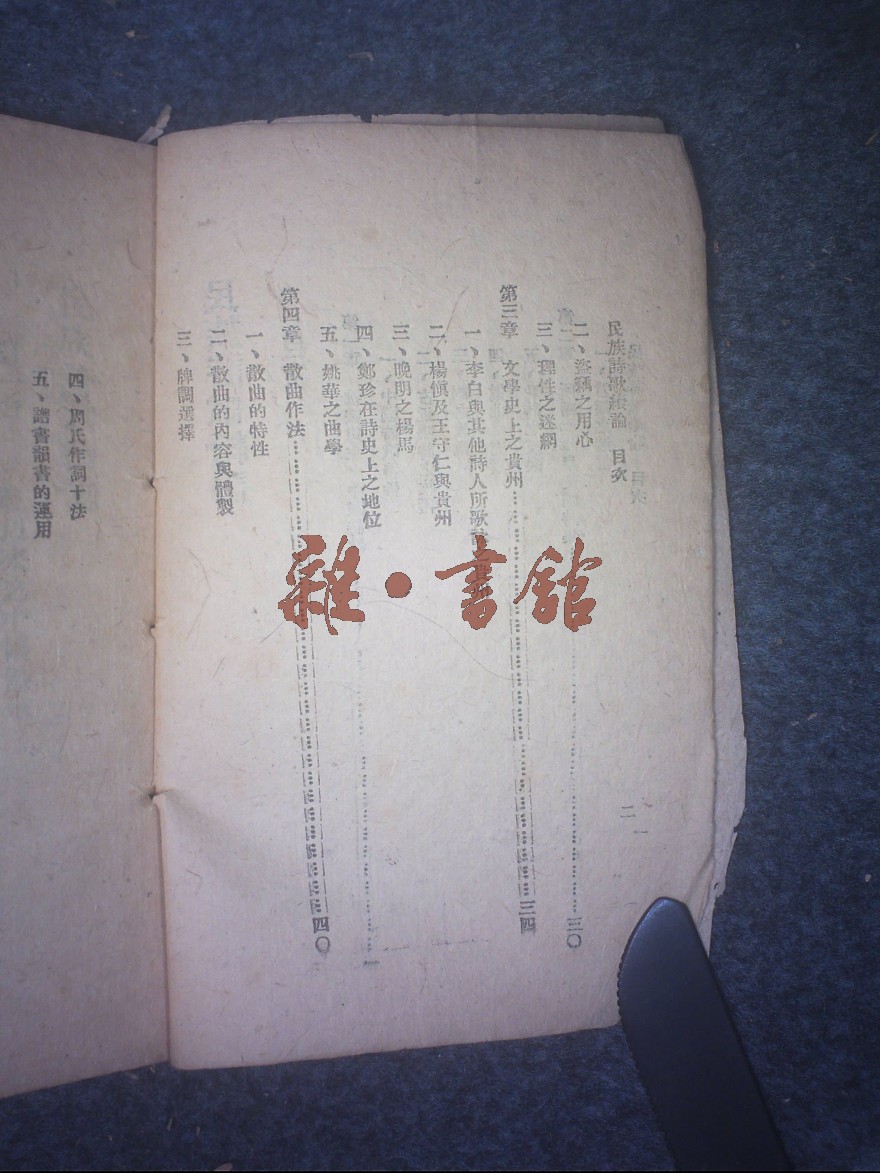 民族詩歌續論　目次
二、盜竊之用心
三、理性之迷網
三〇
第三章　文學史上之貴州……二四
一、李白與其他詩人所歌
二、楊愼及王守仁與貴州
三、晚明之楊馬
四、鄭珍在詩史上之地位
五、姚華之曲學
第四章　散曲作法……四〇
一、散曲的特性
二、散曲的內容與體製
三、牌調選擇
二
四、周氏作詞十法
五、譜書韻書的運用
雜·書館